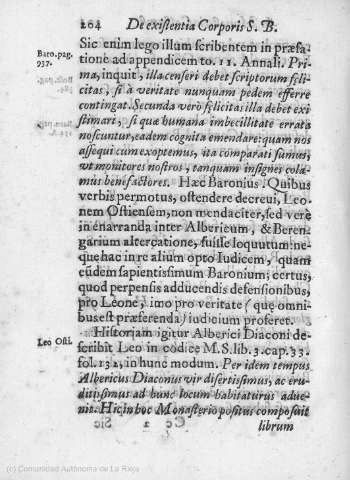 264 De existentia Corporis S. B.
Baro. pag.
937.
Sic enim lego illum scribentem in præfa-
tione ad appendicem to. 11. Annali. Pri-
ma, inquit, illa censeri debet scriptorum feli-
citas, si à veritate nunquam pedem efferre
contingat. Secunda verò felicitas illa debet exi
stimari, si quæ humana imbecillitate errata
noscuntur, eadem cognita emendare: quam nos
assequi cum exoptemus, ita comparati sumus,
vt monitores nostros, tanquam insignes cola-
mus benefactores. Hæc Baronius. Quibus
verbis permotus, ostendere decreui, Leo-
nem Ostiensem, non mendaciter, sed verè
in enarranda inter Albericum, & Beren-
garium altercatione, fuisse loquutum: ne-
que hac in re alium opto Iudicem, quam
eūdem sapientissimum Baronium; certus,
quod perpensis adducendis defensionibus,
pro Leone, imo pro veritate (quæ omni-
bus est præferenda) iudicium proferet.
Leo Osti.
Historiam igitur Alberici Diaconi de-
scribit Leo in codice M.S. lib. 3. cap. 33.
fol. 132, in hunc modum. Per idem tempus
Albericus Diaconus vir disertissimus, ac eru-
ditissimus ad hunc locum habitaturus adue-
nit. Hic in hoc Monasterio positus composuit
librum
(c) Comunidad Autónoma de La Rioja